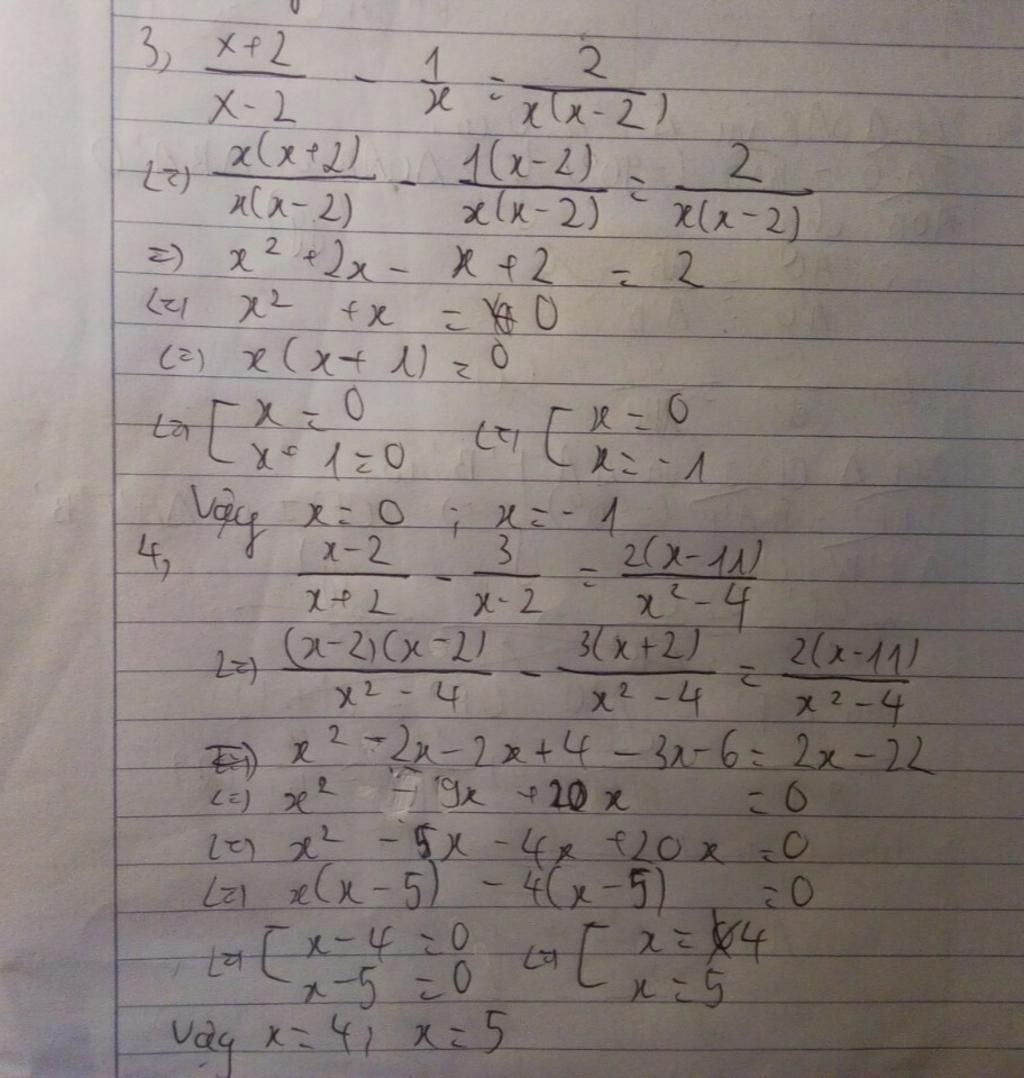 3, (x+2)/(x-2) - 1/x = 2/(x(x-2))
(=) x(x+2)/(x(x-2)) - 1(x-2)/(x(x-2)) = 2/(x(x-2))
=) x² + 2x - x + 2 = 2
(=) x² + x = 0
(=) x(x+1) = 0
(=) [ x = 0 (=) [ x = 0
x + 1 = 0 x = -1
Vậy x = 0 ; x = -1
4, (x-2)/(x+2) - 3/(x-2) = 2(x-11)/(x²-4)
(=) (x-2)(x-2)/(x²-4) - 3(x+2)/(x²-4) = 2(x-11)/(x²-4)
=) x² - 2x - 2x + 4 - 3x - 6 = 2x - 22
(=) x² - 9x + 20x = 0
(=) x² - 5x - 4x + 20x = 0
(=) x(x-5) - 4(x-5) = 0
(=) [ x - 4 = 0 (=) [ x = 4
x - 5 = 0 x = 5
Vậy x = 4; x = 5